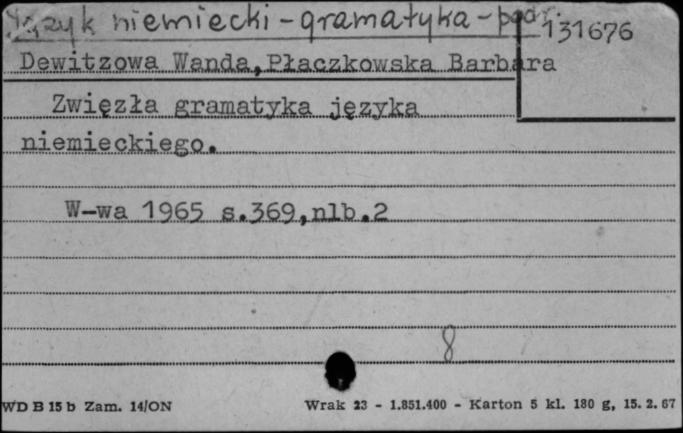 Język niemiecki - gramatyka - podr.
131676
Dewitzowa Wanda,Płaczkowska Barbara
Zwięzła gramatyka języka
niemieckiego.
W-wa 1965 s.369,nlb.2
8
WD B 15 b Zam. 14/ON
Wrak 23 - 1.851.400 - Karton 5 kl. 180 g, 15. 2. 67